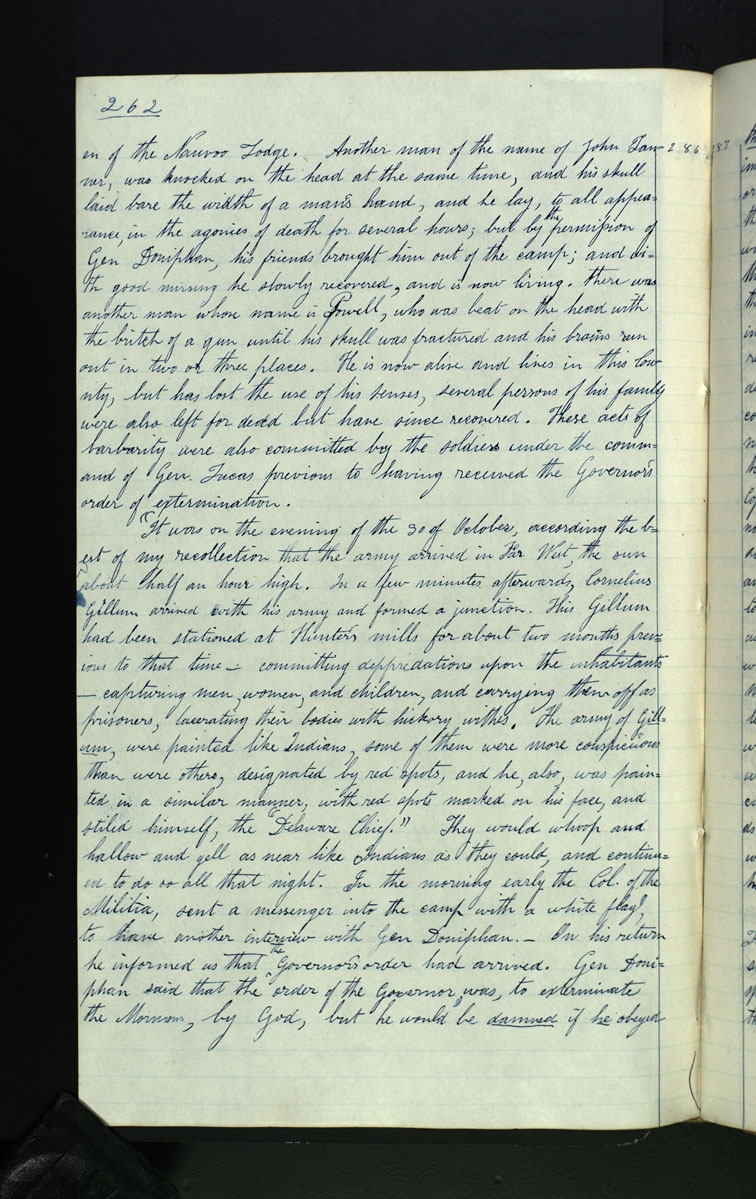 262
en of the Nauvoo Lodge. Another man of the name of John Tan- 286 287
ner, was knocked on the head at the same time, and his skull
laid bare the width of a man's hand, and he lay, to all appea=
rance, in the agonies of death for several hours; but by the permission of
Gen Doniphan, his friends brought him out of the camp; and wi=
th good nursing he slowly recovered, and is now living. There was
another man whose name is Powell, who was beat on the head with
the britch of a gun until his skull was fractured and his brains run
out in two or three places. He is now alive and lives in this Cou
nty, but has lost the use of his senses, several persons of his family
were also left for dead but have since recovered. These acts of
barbarity were also committed by the soldiers under the comm=
and of Gen. Lucas previous to having received the Governor's
order of extermination.
"It was on the evening of the 30 of October, according the b=
est of my recollection that the army arrived in Far West, the sun
about half an hour high. In a few minutes afterwards, Cornelius
Gillum arrived with his army and formed a junction. This Gillum
had been stationed at Hunter's mills for about two months prev=
ious to that time — committing deppredations upon the inhabitants
— capturing men, women, and children, and carrying them off as
prisoners, lacerating their bodies with hickory withes. The army of Gill=
um, were painted like Indians, some of them were more conspicuous
than were others, designated by red spots, and he, also, was pain=
ted in a similar manner, with red spots marked on his face, and
stiled himself, the "Delaware Chief." They would whoop and
hallow and yell as near like Indians as they could, and continu=
ed to do so all that night. In the morning early the Col. of the
Militia, sent a messenger into the camp with a white flag,
to have another interview with Gen Doniphan. — On his return
he informed us that the Governor's order had arrived. Gen Doni=
phan said that the "order of the Governor, was, to exterminate
the Mormons, by God, but he would be damned if he obeyed